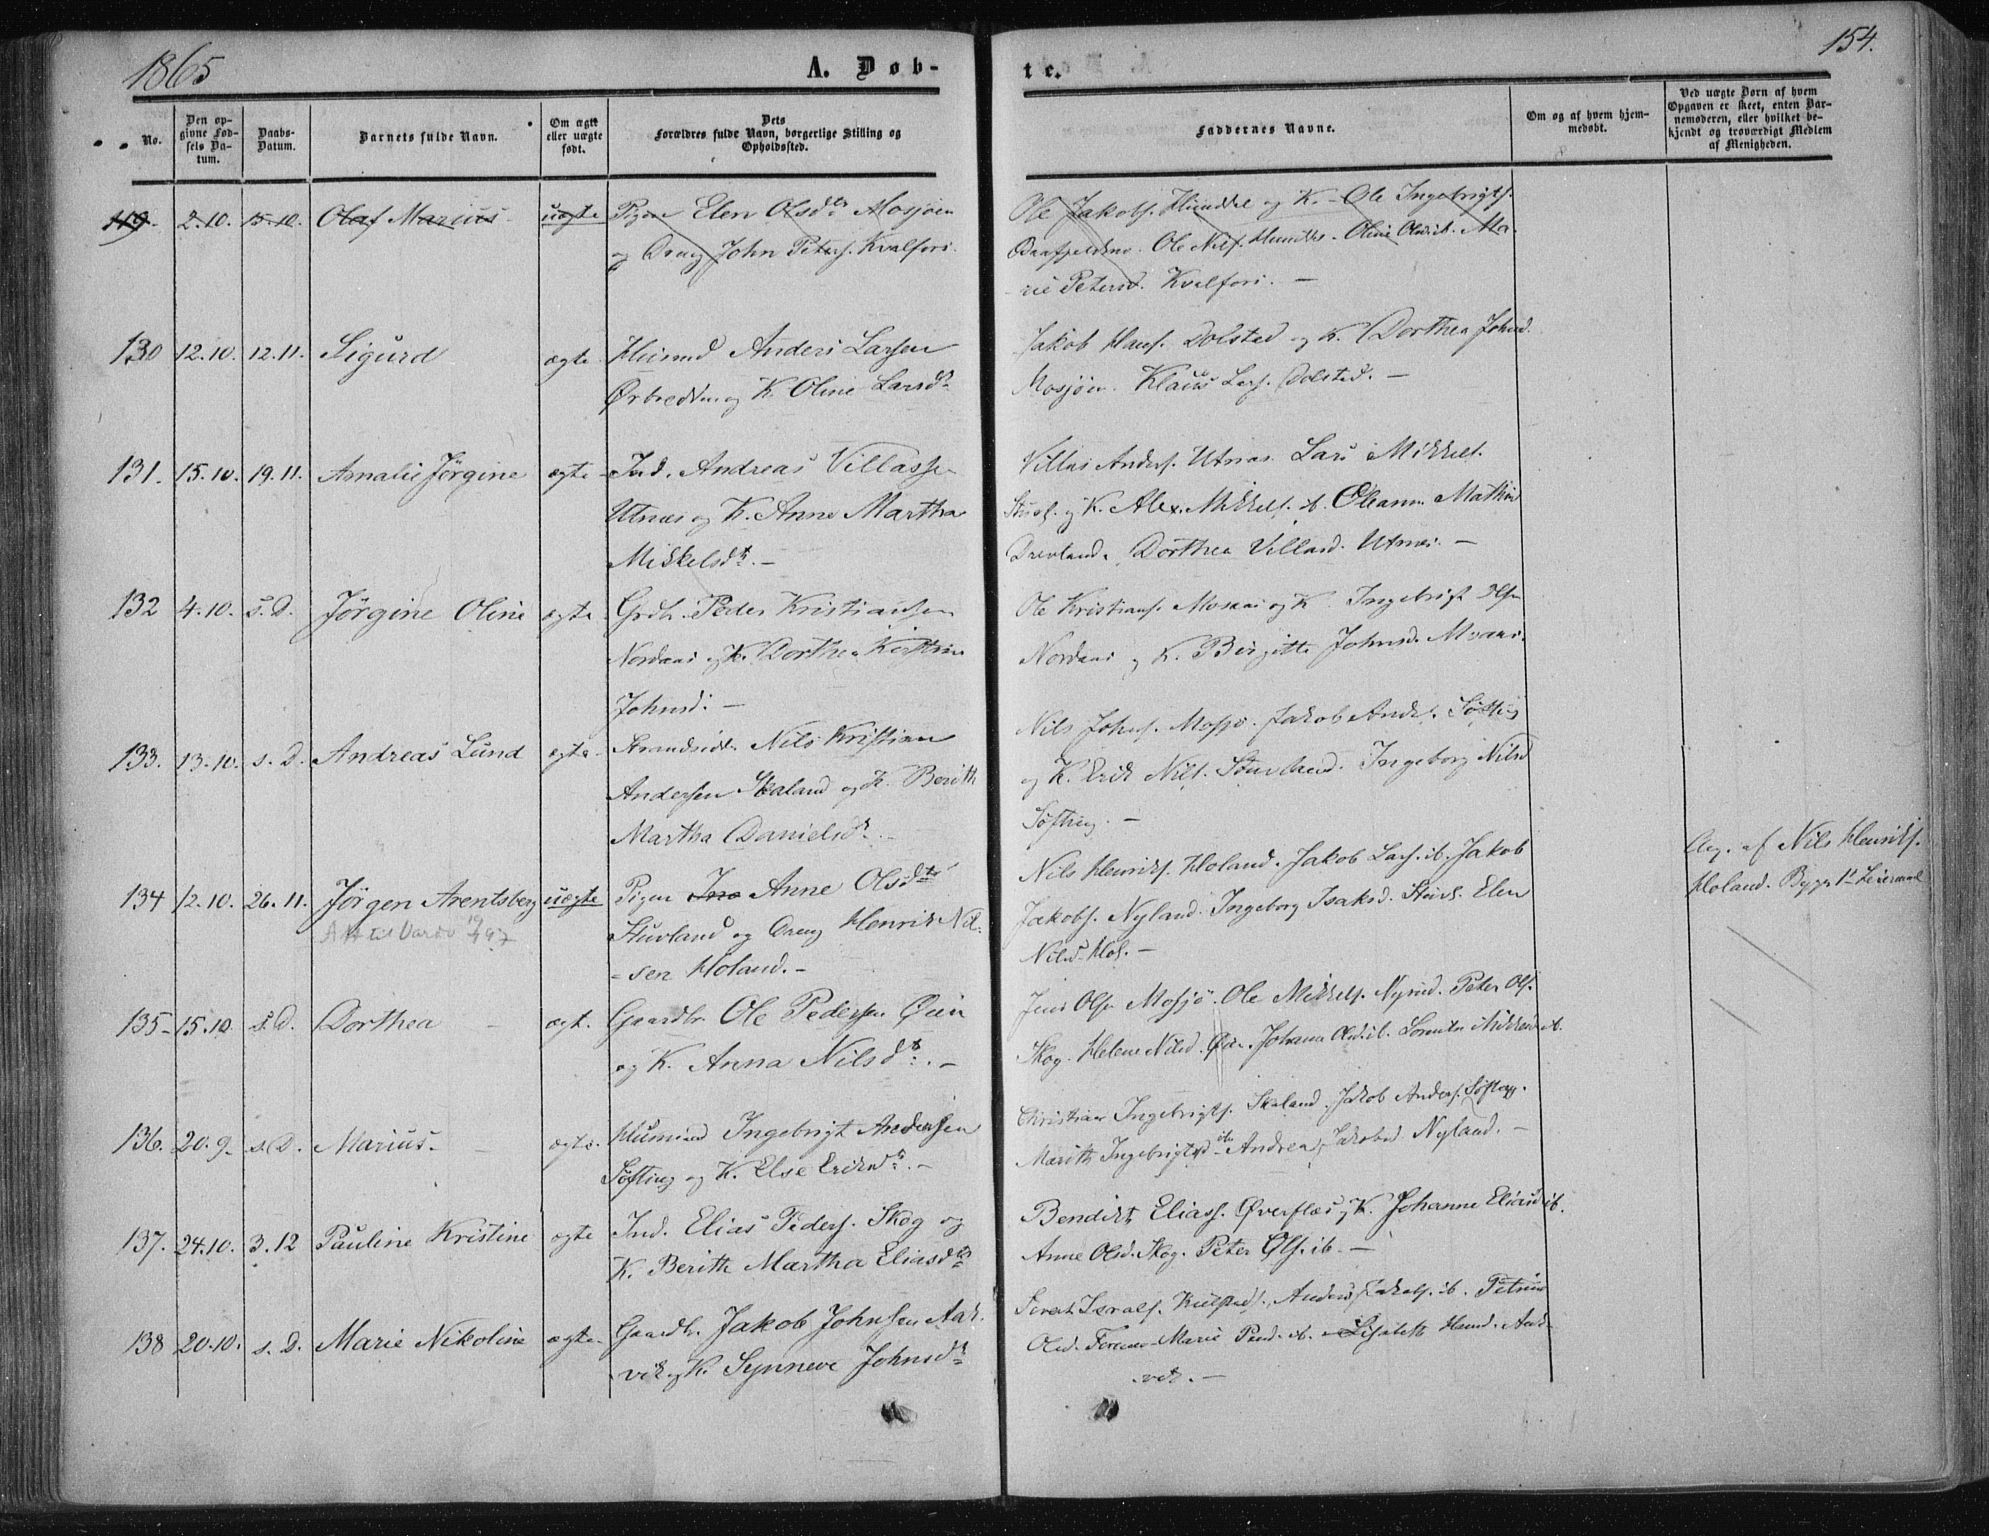 1865
A. Døb-
te.
154.
No.
Den op-
givne Fød-
sels Da-
tum.
Daabs-
Datum.
Barnets fulde Navn.
Om ægte
eller uægte
født.
Dets
Forældres fulde Navn, borgerlige Stilling og
Opholdssted.
Faddernes Navne.
Om og af hvem hjem-
medøbt.
Ved uægte Børn af hvem
Opgaven er skeet, enten Bar-
nemoderen, eller hvilket be-
kjendt og troværdigt Medlem
af Menigheden.
119. 2.10. 15.10. Olaf Marius uægte Pigen Elen Olsdtr Mosjøen
og Dreng John Peters. Kvalfors.
Ole Jakobs. og K. Ole Ingebrigts.
Ole Nils. Oline Olsd. ib. Ma-
rie Petersd. Kvalfors. —
130 12.10. 12.11. Sigurd ægte Husmd Anders Larsen
og K. Oline Larsdr
Jakob Hans. Dolsted og K. Dorthea Johnsd.
Mosjøen. Klaus Lars. Dolsted. —
131. 15.10. 19.11. Amalie Jørgine ægte Ind. Andreas Villassen
Utnæs og K. Anne Martha
Mikkelsdtr. —
Villas Anders. Utnæs. Lars Mikkels.
og K. Alex. Mikkels. ib. Oleanna Mathis
Drevland. Dorthea Villasd. Utnæs. —
132 4.10. s.D. Jørgine Oline ægte Grdbr. Peder Kristiansen
Nordaas og K. Dorthea Kristine
Johnsd. —
Ole Kristians. Mosaas og K. Ingebrigt Ols.
Nordaas og K. Birgitte Johnsd.
133. 13.10. s.D. Andreas Lund ægte Strandsidd. Nils Kristian
Andersen Skaland og K. Berith
Martha Danielsdr. —
Nils Johns. Mosjø. Jakob Anders. Søfting
og K. Erik Nils. Stuvland. Ingeborg Nilsd
Søfting. —
134 12.10. 26.11. Jørgen Arentsberg uægte Pigen Anne Olsdtr
Stuvland og Dreng Henrik Niel-
sen Holand. —
Nils Henriks. Holand. Jakob Lars. ib. Jakob
Jakobs. Nyland. Ingeborg Isaksd. Elen
Nilsd. Hol. —
Ang. af Nils Henriks.
Holand. Begges 1ste Leiermaal
135 15.10. s.D. Dorthea ægt. Gaardbr. Ole Pedersen Øien
og K. Anna Nilsdtr. —
Jens Ols. Mosjø. Ole Mikkels. Nyrud. Peter Ols.
Skog. Helene Nilsd. Øien. Johanna Olsd. ib.
136. 20.9. s.D. Marius ægte. Husmand Ingebrigt Andersen
Søfting og K. Else Eriksdr. —
Christian Ingebrigts. Skaland. Jakob Anders. Søfting.
Marith Ingebrigtsd. ib. Andrea Jakobsd. Nyland. —
137. 24.10. 3.12 Pauline Kristine ægte Ind. Elias Peders. Skog og
K. Berith Martha Eliasdtr
Bendikt Eliass. Øverflæs og K. Johanne Eliasd. ib.
Anne Olsd. Skog. Peter Ols. ib. —
138 20.10. s.D. Marie Nikoline ægte Gaardbr. Jakob Johnsen Aak-
vik og K. Synneve Johnsdtr
Sivert Israels. Kulstad. Anders Jakobs. ib. Petrine
Olsd. Marie Pedd. ib. Lisabeth Hansd. Aak-
vik. —